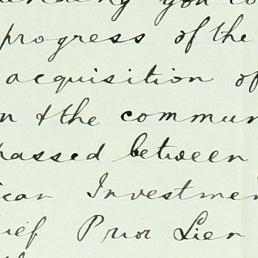 you
progress of the
acquisition of
n & the commun
passed between
ican Investmen
ief Prior Lien